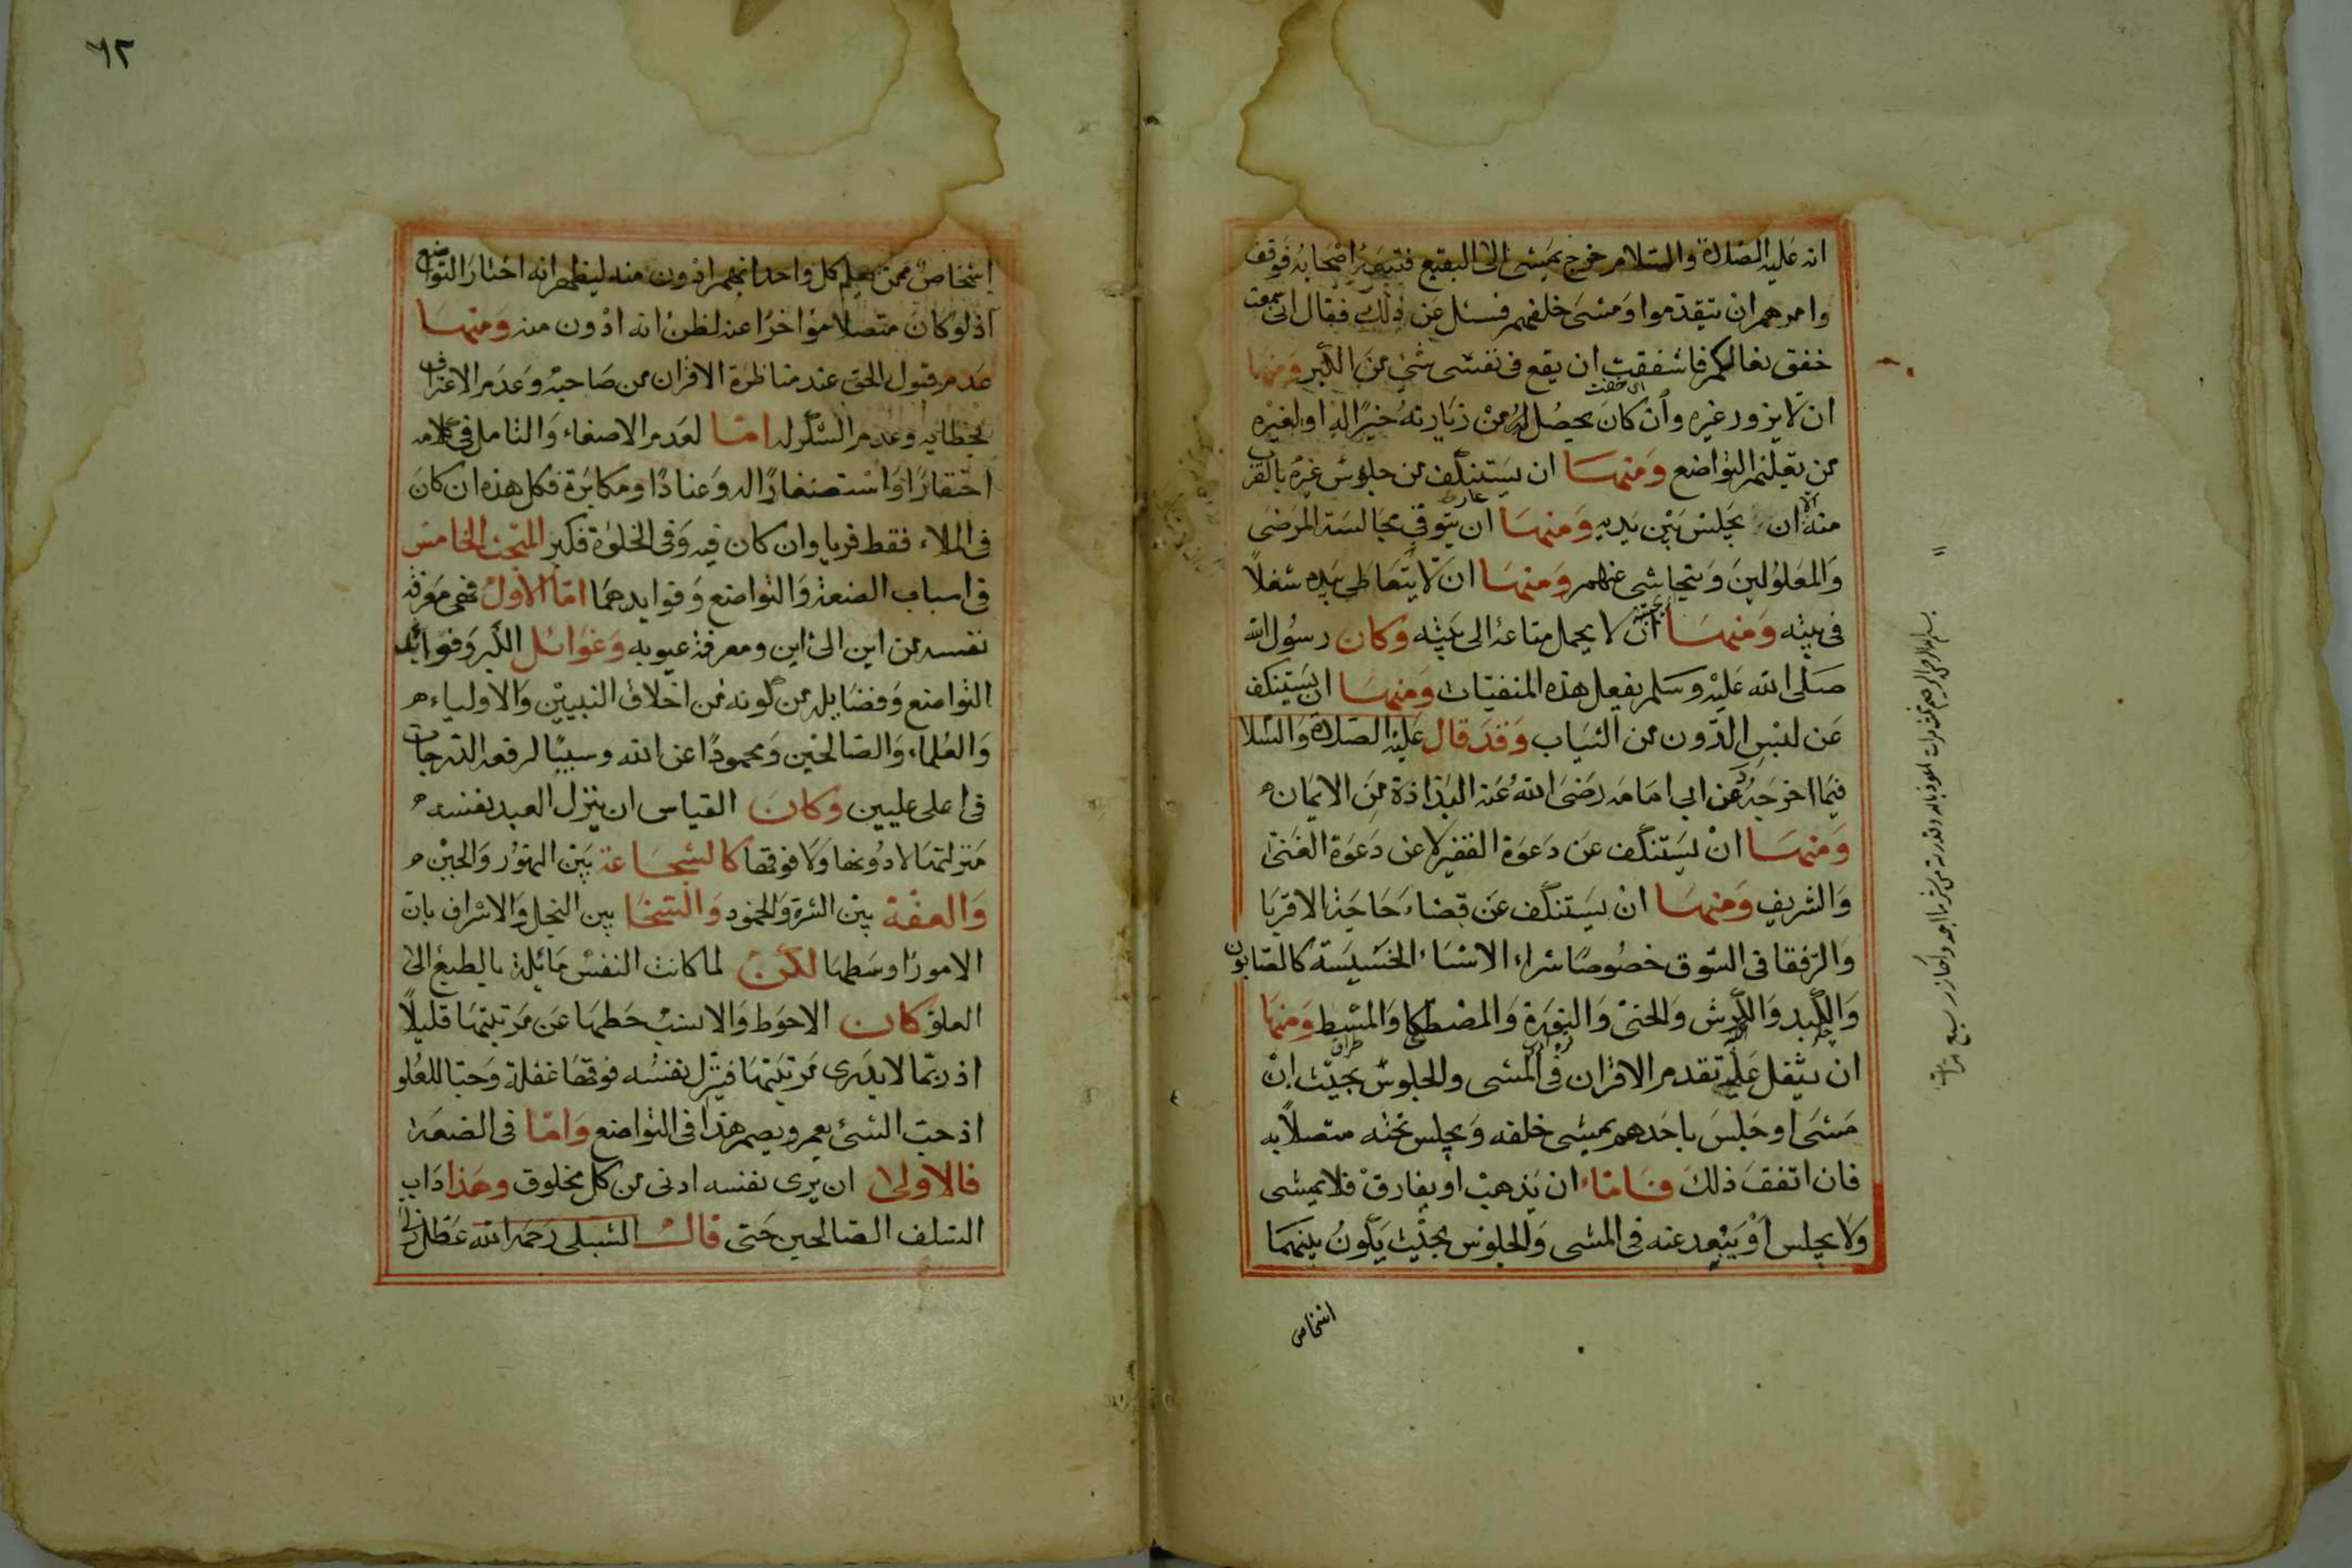 انه عليه الصلاة والسلام خرج يمشى الى البقيع فتبعه اصحابه فوقف
وامرهم ان تيقدموا ومشى خلفهم فسئل عن ذلك فقال انى سمعت
خفق نعالكم فاشفقت ان يقع فى نفسى شئ من الكبر ومنها
اى خفت
ان لا يزور غيره وان كان يحصل له من زيارته خير الله او لغيره
من تعلم التواضع ومنها ان يستنكف من جلوس غيره بالقرب
منه الا ان يجلس بين يديه ومنها ان يتوقى مجالسة المرضى
والمعلولين ويتحاشى عنهم ومنها ان لا يتعاطى بيده شغلا
فى بيته ومنها ان لا يحمل متاعه الى بيته وكان رسول الله
صلى الله عليه وسلم يفعل هذه المنفيات ومنها ان يستنكف
عن لبس الدون من الثياب وقد قال عليه الصلاة والسلا
فيما اخرجه د عن ابى امامه رضى الله عنه البذاذة من الايمان
ومنها ان يستنكف عن دعوة الفقير لا عن دعوة الغنى
والشريف ومنها ان يستنكف عن قضاء حاجة الاقربا
والرفقا فى السوق خصوصا شراء الاشياء الخسيسة كالصابون
والكبد والكرش والحنى والنورة والمصطكا والمشط ومنها
ان يثقل عليه تقدم الاقران فى المشى والجلوس بحيث ان
مشى او جلس باحدهم يمشى خلفه ويجلس تحته متصلا به
فان اتفق ذلك فاماء ان يذهب او يفارق فلا يمشى
ولا يجلس او يبعد عنه فى المشى والجلوس بحيث يكون بينهما
اشخاص
٦٢
اشخاص ممن يعلم كل واحد انهم ادون منه ليظهر انه اختار التواضع
اذ لو كان متصلا مؤاخرا عنه لظن انه ادون منه ومنها
عدم قبول الحق عند مناظرة الاقران من صاحبه وعدم الاعتراف
بخطايه وعدم الشكر له اما لعدم الاصغاء والتامل فى كلامه
احتقارا واستصغارا له وعنادا ومكابرة فكل هذه ان كان
فى الملاء فقط فريا وان كان فيه وفى الخلوة فكبر المبحث الخامس
فى اسباب الضعة والتواضع وفوايدهما اما الاول فهى معرفة
نفسه من اين الى اين ومعرفة عيوبه وغوائل الكبر وفوايد
التواضع وفضايله من كونه من اخلاق النبيين والاولياء
والعلماء والصالحين ومحمودا عن الله وسببا لرفعه الدرجات
فى اعلى عليين وكان القياس ان ينزل العبد نفسه
منزلتها لا دونها ولا فوقها كالشجاعة بين التهور والجبن
والعفة بين الشره والخمود والسخا بين البخل والاسراف بان
الامور اوسطها لكن لما كانت النفس مائلة بالطبع الى
العلو كان الاحوط والانسب حطها عن مرتبتها قليلا
اذ ربما لا يدرى مرتبتها فينزل نفسه فوقها غفلة وحبا للعلو
اذ حب الشئ يعمى ويصم هذا فى التواضع واما فى الضعة
فالاولى ان يرى نفسه ادنى من كل مخلوق وهذا داب
السلف الصالحين حتى قال الشبلى رحمه الله عطل ذلى